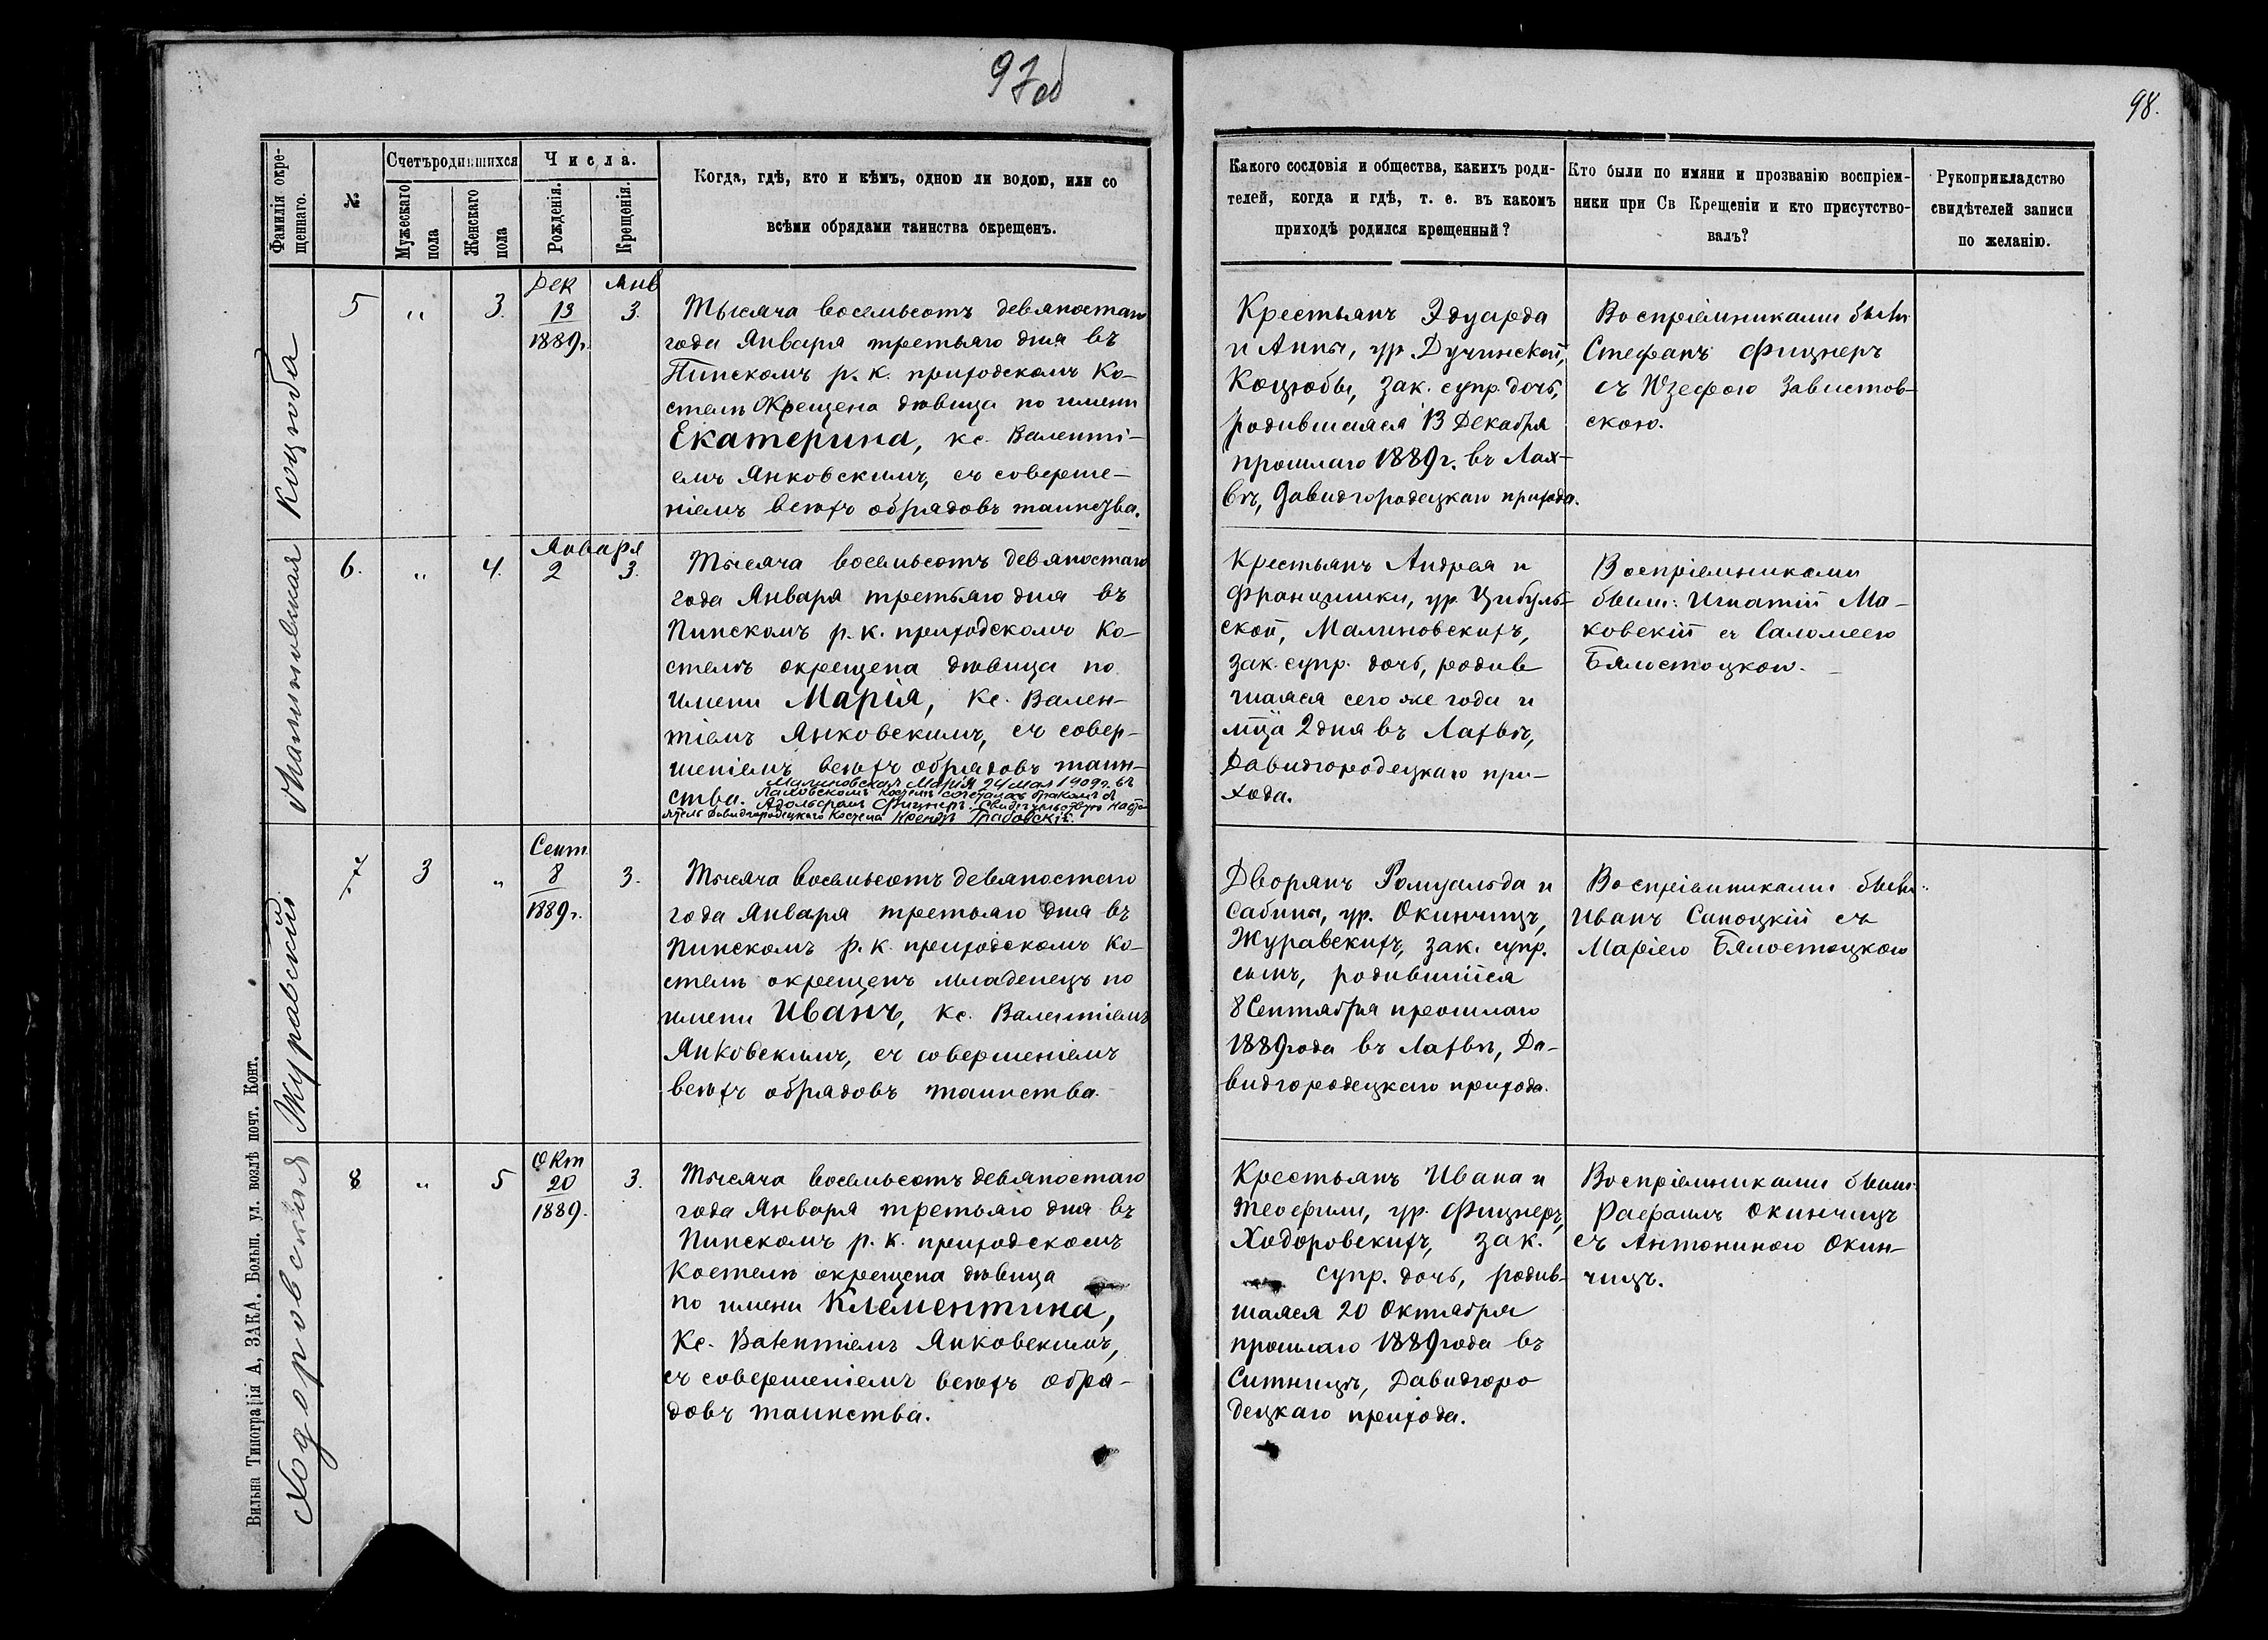 97об
98.
Фамилія окре-
щеннаго.
№
Счетъ родившихся
Мужескаго
пола
Женскаго
пола
Числа.
Рожденія.
Крещенія.
Когда, гдѣ, кто и кѣмъ, одною ли водою, или со
всѣми обрядами таинства окрещенъ.
Какого сословія и общества, какихъ роди-
телей, когда и гдѣ, т. е. въ какомъ
приходѣ родился крещенный?
Кто были по имяни и прозванію воспріем-
ники при Св Крещеніи и кто присутство-
валъ?
Рукоприкладство
свидѣтелей записи
по желанію.
Коцюба
5
"
3.
Дек
13
1889г.
Янв
3.
Тысяча восемьсотъ девяностаго
года Января третьяго дня въ
Пинскомъ р. к. приходскомъ Ко-
стелѣ окрещена дѣвица по имени
Екатерина, кс. Валенті-
емъ Янковскимъ, съ соверше-
ніемъ всѣхъ обрядовъ таинства.
Крестьянъ Эдуарда
и Анны, ур. Дучинской,
Коцюбы, зак. супр. дочь,
родившаяся 13 Декабря
прошлаго 1889 г. въ Лах-
вѣ, Давидгородецкаго прихода.
Воспріемниками были
Стефанъ Фицнеръ
съ Юзефою Завистов-
скою.
Малиновская
6.
"
4.
Января
2
3.
Тысяча восемьсотъ девяностаго
года Января третьяго дня въ
Пинскомъ р. к. приходскомъ Ко-
стелѣ окрещена дѣвица по
имени Марія, Кс. Вален-
тіемъ Янковскимъ, съ совер-
шеніемъ всѣхъ обрядовъ таин-
ства.
Малиновская Марія 24 мая 1909г. въ
костелѣ сочеталась бракомъ съ
Адольфомъ Фицнеръ. Свидѣтельствую насто-
ятель Давидгородецкаго Костела Ксендзъ Грабовскій.
Крестьянъ Андрея и
Францишки, ур. Цибуль-
ской, Малиновскихъ,
зак. супр. дочь, родив
шаяся сего же года и
мца 2 дня въ Лахвѣ,
Давидгородецкаго при-
хода.
Воспріемниками
были: Игнатій Ма-
ковскій съ Саломеею
Бялостоцкой.
Журавскій
7
3
"
Сент.
8
1889г.
3.
Тысяча восемьсотъ девяностаго
года Января третьяго дня въ
Пинскомъ р. к. приходскомъ Ко-
стелѣ окрещенъ младенецъ по
имени Иванъ, Кс. Валентіемъ
Янковскимъ, съ совершеніемъ
всѣхъ обрядовъ таинства.
Дворянъ Ромуальда и
Сабины, ур. Окинчицъ,
Журавскихъ, зак. супр.
сынъ, родившійся
8 Сентября прошлаго
1889 года въ Лахвѣ, Да-
видгородецкаго прихода.
Воспріемниками были:
Иванъ Саноцкій съ
Маріею Бялостоцкою
Ходоровская
8
"
5
Окт
20
1889.
3.
Тысяча восемьсотъ девяностаго
года Января третьяго дня въ
Пинскомъ р. к. приходскомъ
Костелѣ окрещена дѣвица
по имени Клементина,
Кс. Валентіемъ Янковскимъ,
съ совершеніемъ всѣхъ обря-
довъ таинства.
Крестьянъ Ивана и
Теофили, ур. Фицнеръ,
Ходоровскихъ, зак.
супр. дочь, родив-
шаяся 20 Октября
прошлаго 1889 года въ
Ситницѣ, Давидгоро
децкаго прихода.
Воспріемниками были
Рафаилъ Окинчицъ
съ Антониною Окин-
чицъ.
Вильна Типографія А, ЗАКА. Больш. ул. возлѣ почт. Конт.